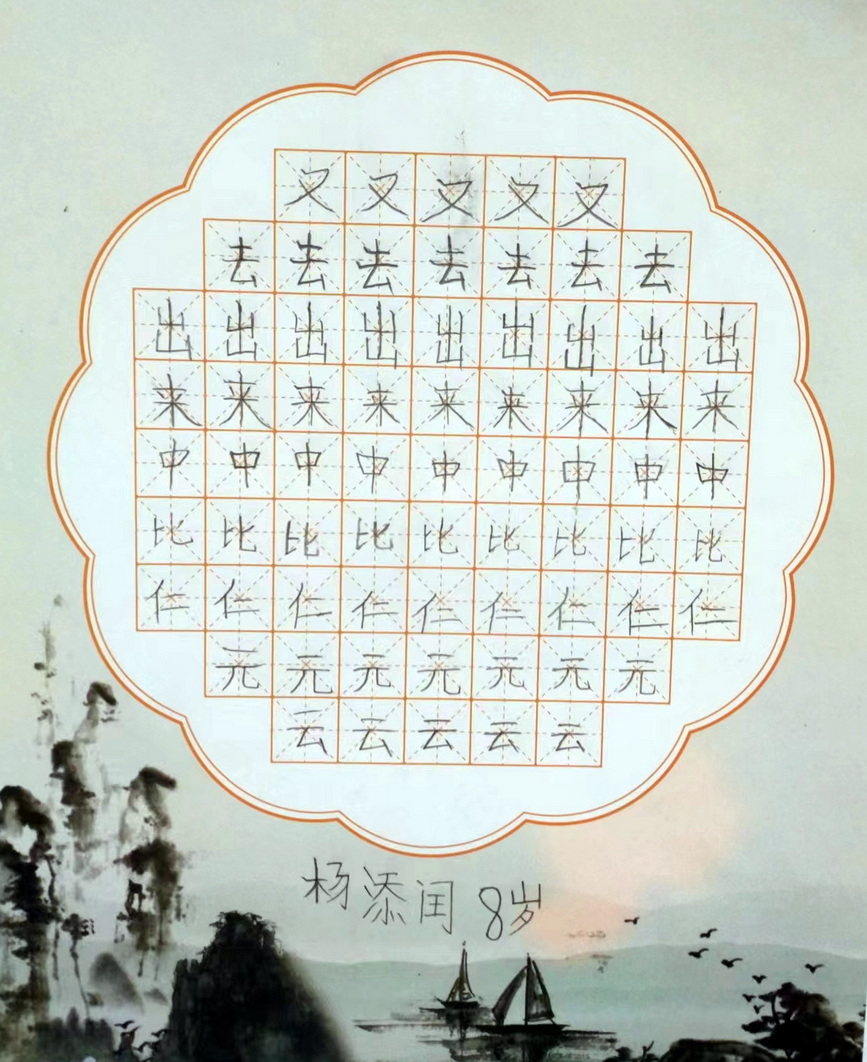 又又又又又
去去去去去去去
出出出出出出出出出
来来来来来来来来来
中中中中中中中中中
比比比比比比比比比
仁仁仁仁仁仁仁仁仁
元元元元元元元
云云云云云
杨添闰 8岁